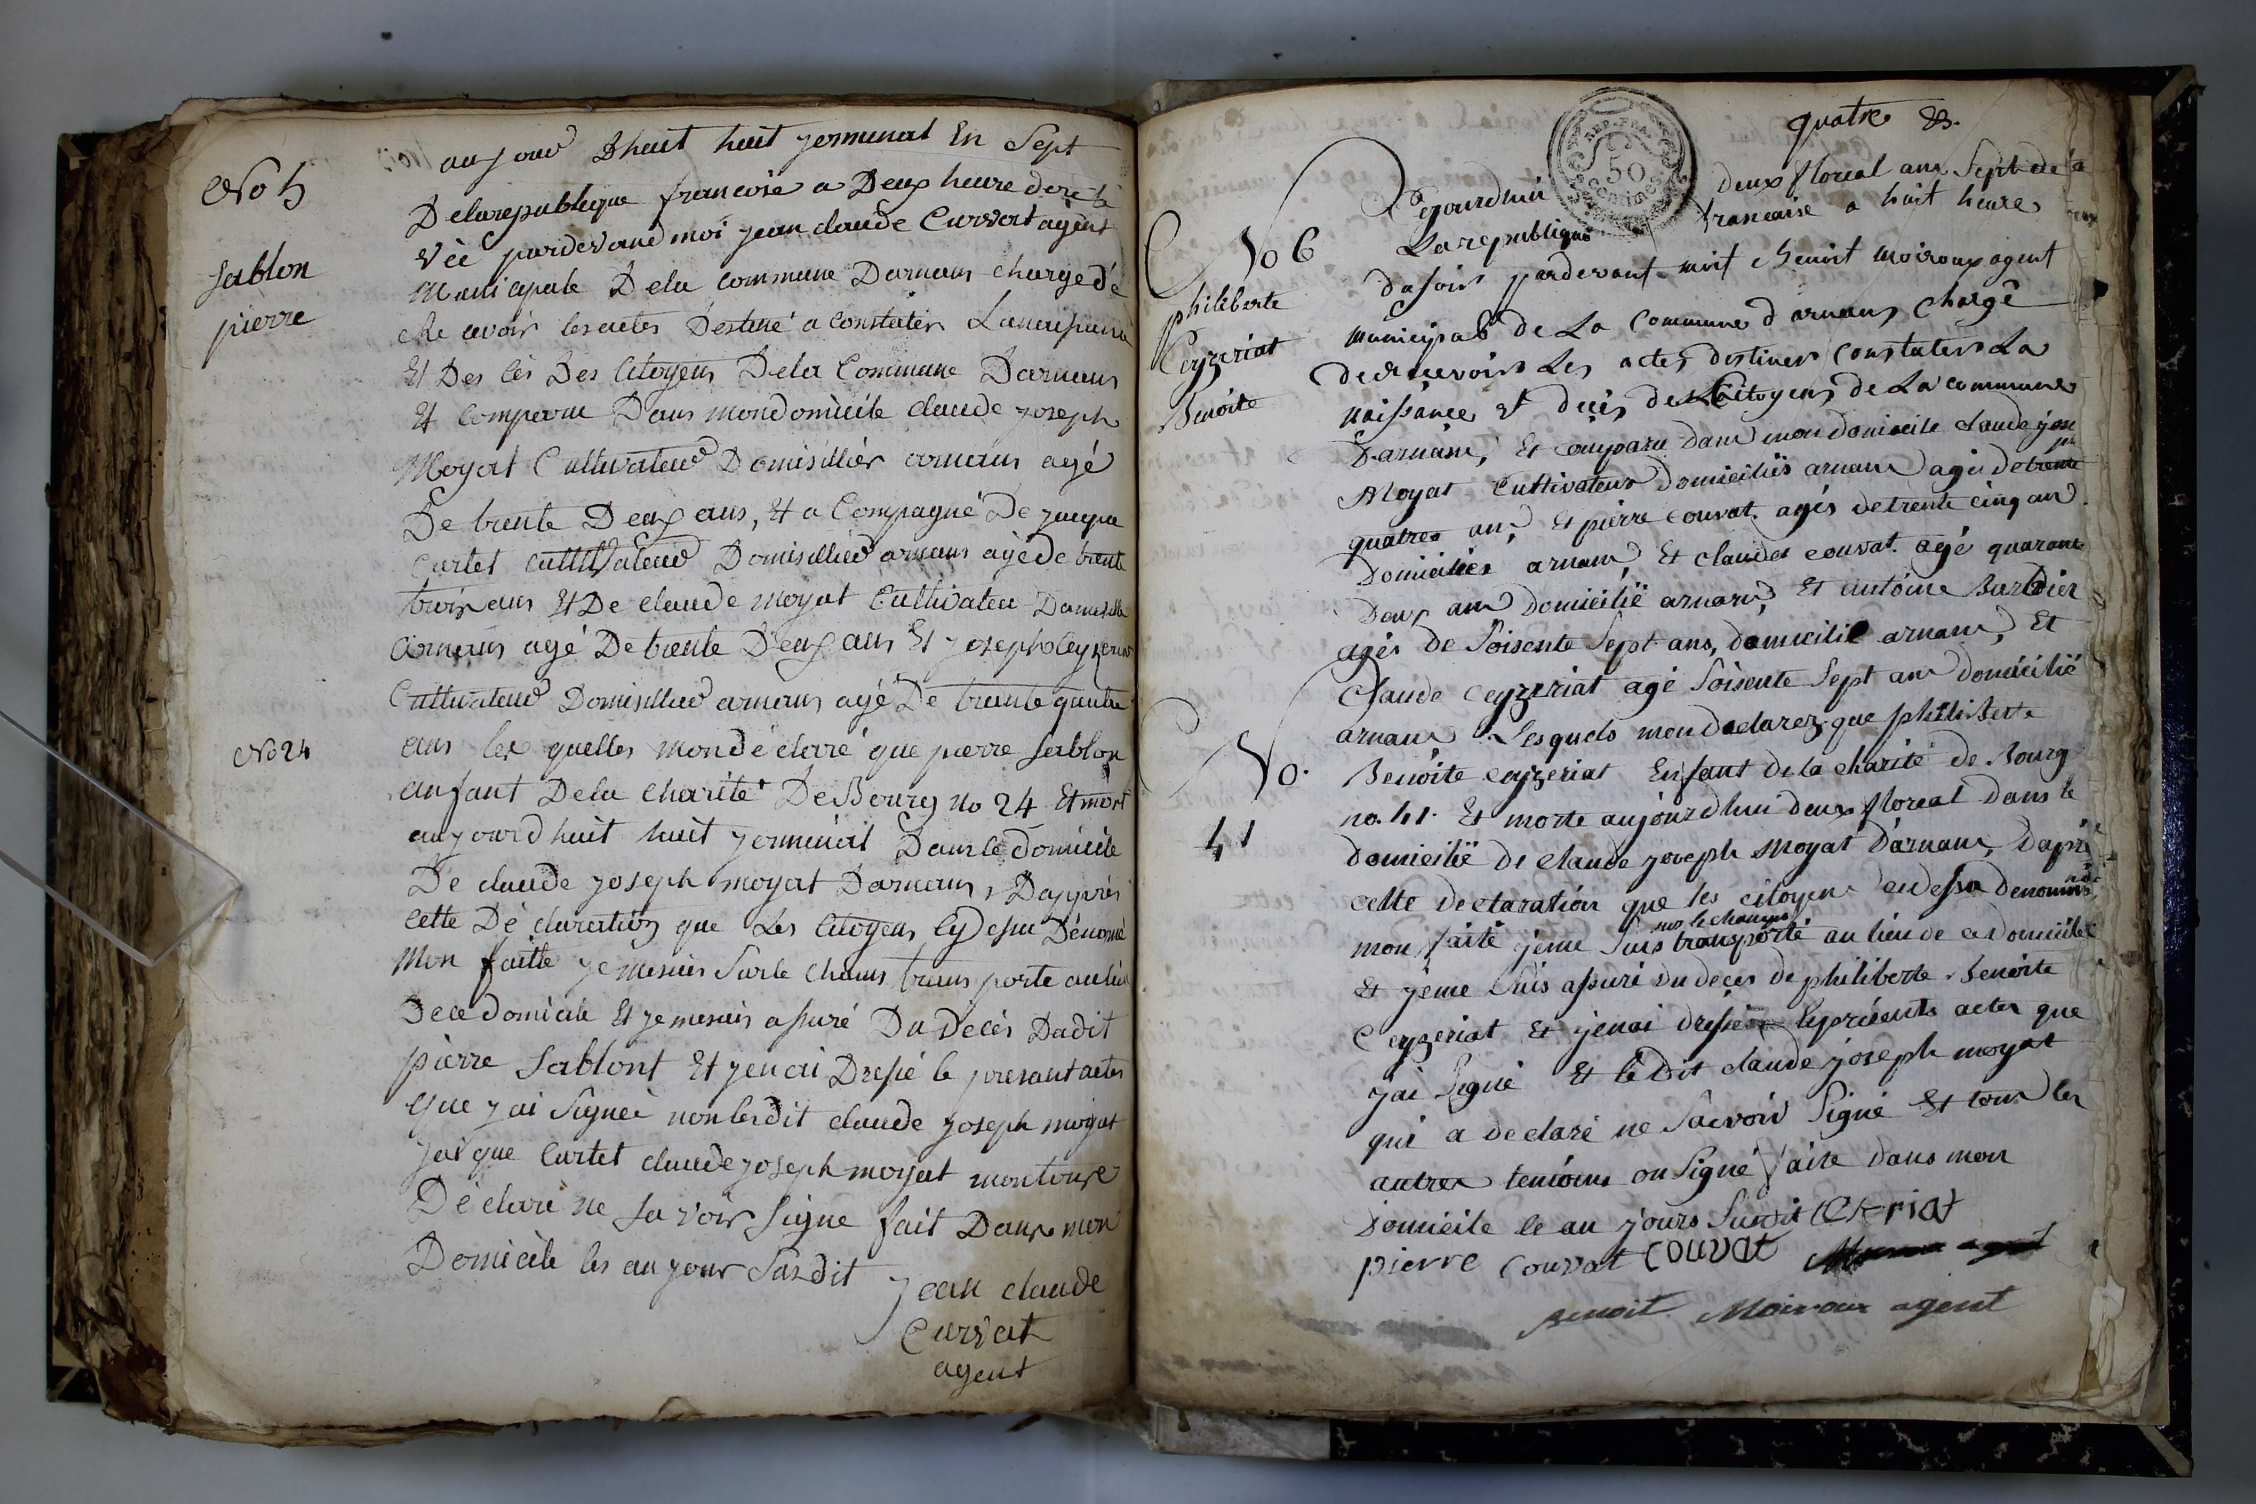 No 5
Sablon
pierre
No 24
aujour Dhuit huit jerminal En Sept
Delarepublique francoise a Deux heure dere le
vée pardevand moi jean claude Curvat agent
Municipale Dela commune Darnans chargé dé
Re cevoir lesactes Destiné a constater Lanaipance
Et Des cès Des Citoyens Dela Commune Darnans
Et comparue Dans mondomicile claude joseph
Moyat Cultivateur Domisillier arnans agé
De trente Deux ans, Et a Compagné De jacque
Curtet cultivateur Domisillier arnans agé de trente
troix ans Et De claude moyat Cultivateu Domisillie
arnans agé De trente Deux ans Et joseph Ceyzeriat
Cultivateur Domisillier arnans agé De trente quatre
ans lex quelles mondéclaré que pierre Sablon
anfant Dela charité De Bourg No 24 Et mort
aujourdhuit huit jerminal Dans le domicile
De claude joseph moyat Darnans, Dapprès
cette Dé claration que Les Citoyens Cydesu Dénomé
Mon faitte je mesuis Surle Chams trans porté aulieu
Dece domicile Et jemesuis assuré Du Decès Dudit
pierre Sablont Et jenai Dressé le presant actes
que jai Signeé non lesdit claude joseph moyat
jacque Curtet claude joseph moyat montousse
Déclaré ne Sa voir Signe fait Dans mon
Domicile les an jour Susdit
jean claude
Curvat
agent
quatre
REP. FRA.
50
centimes
No 6
philiberte
Ceyzeriat
Benoite
No.
41
Aejourdhui deux floreal anx Sept de
La republique francaise a huit heure
dusoir pardevant moit Benoit Moiroux agent
municipal de La Commune d arnans Chargé
De recevoir Les actes destiner Constater La
naissance et decès des Citoyens de La commune
Darnans, Et comparu dans mon domicile claude jose
ph
Moyat Cultivateur domiciliés arnans agés detrente
quatre ans, Et pierre couvat agés detrente cinq ans
Domiciliés arnans, Et claude couvat agé quarante
Deux ans domicilié arnans, Et antoine Barbier
agés de Soisente Sept ans, domicilié arnans, Et
Claude Ceyzeriat agé Soisente Sept ans domicilié
arnans. Lesquels mon declarez que philiberte
Benoite Ceyzeriat Enfant de la charité de Bourg
no. 41. Et morte aujourdhui deux floreal dans le
domicilié de claude joseph Moyat Darnans, Daprè
cette declaration que les citoyens cidessu denommé
sur le champs
mon faite jeme Suis transporté au lieu de ce domicile
Et jeme Suis assuré du decès de philiberte Benoite
Ceyzeriat Et jenai dressé le présents actes que
jai Signé Et le Dit claude joseph moyat
qui a declaré ne Sacvoir Signé Et tous les
autres temoins on Signé faite dans mon
Domicile le an jours Susdit
pierre Couvat Couvat
Benoit Moiroux agent